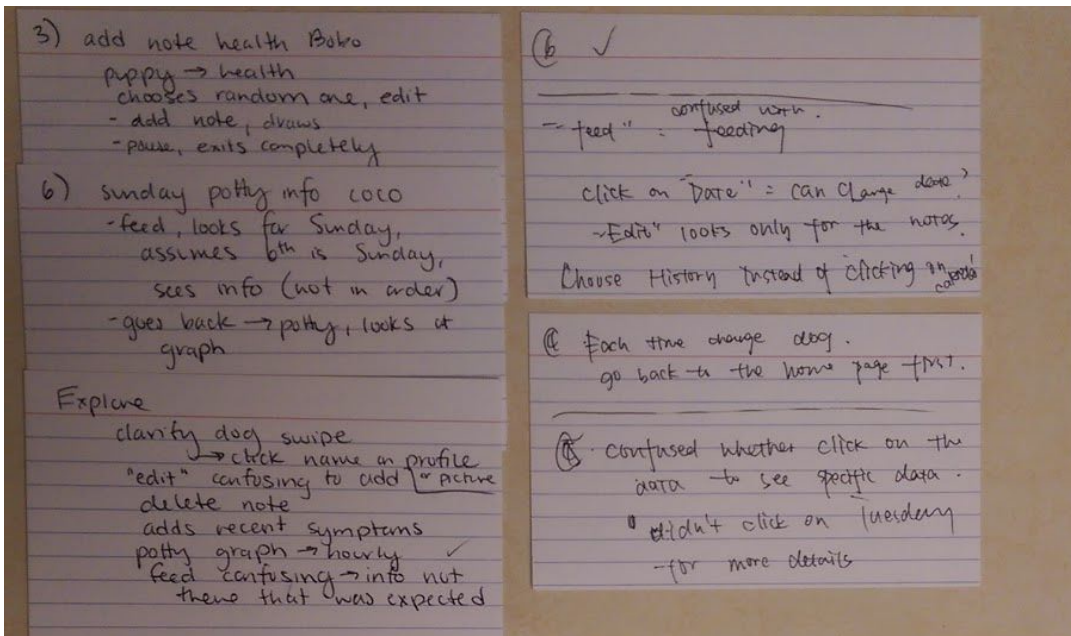 3) add note health Boko
puppy → health
chooses random one, edit
- add note, draws
- pause, exits completely
6) sunday potty info coco
- feed, looks for Sunday,
assumes 6th is Sunday,
sees info (not in order)
- goes back → potty, looks at
graph
Explore
clarify dog swipe
↳ click name on profile
or picture
"edit" confusing to add
delete note
adds recent symptoms
potty graph → hourly ✓
feed confusing → info not
there that was expected
✓
confused with.
- feed" = feeding
click on "Date" = can change date?
- Edit" looks only for the notes.
Choose History instead of clicking on calendar
Each time change dog.
go back to the home page first.
confused whether click on the
data to see specific data.
didn't click on Tuesday
- for more details